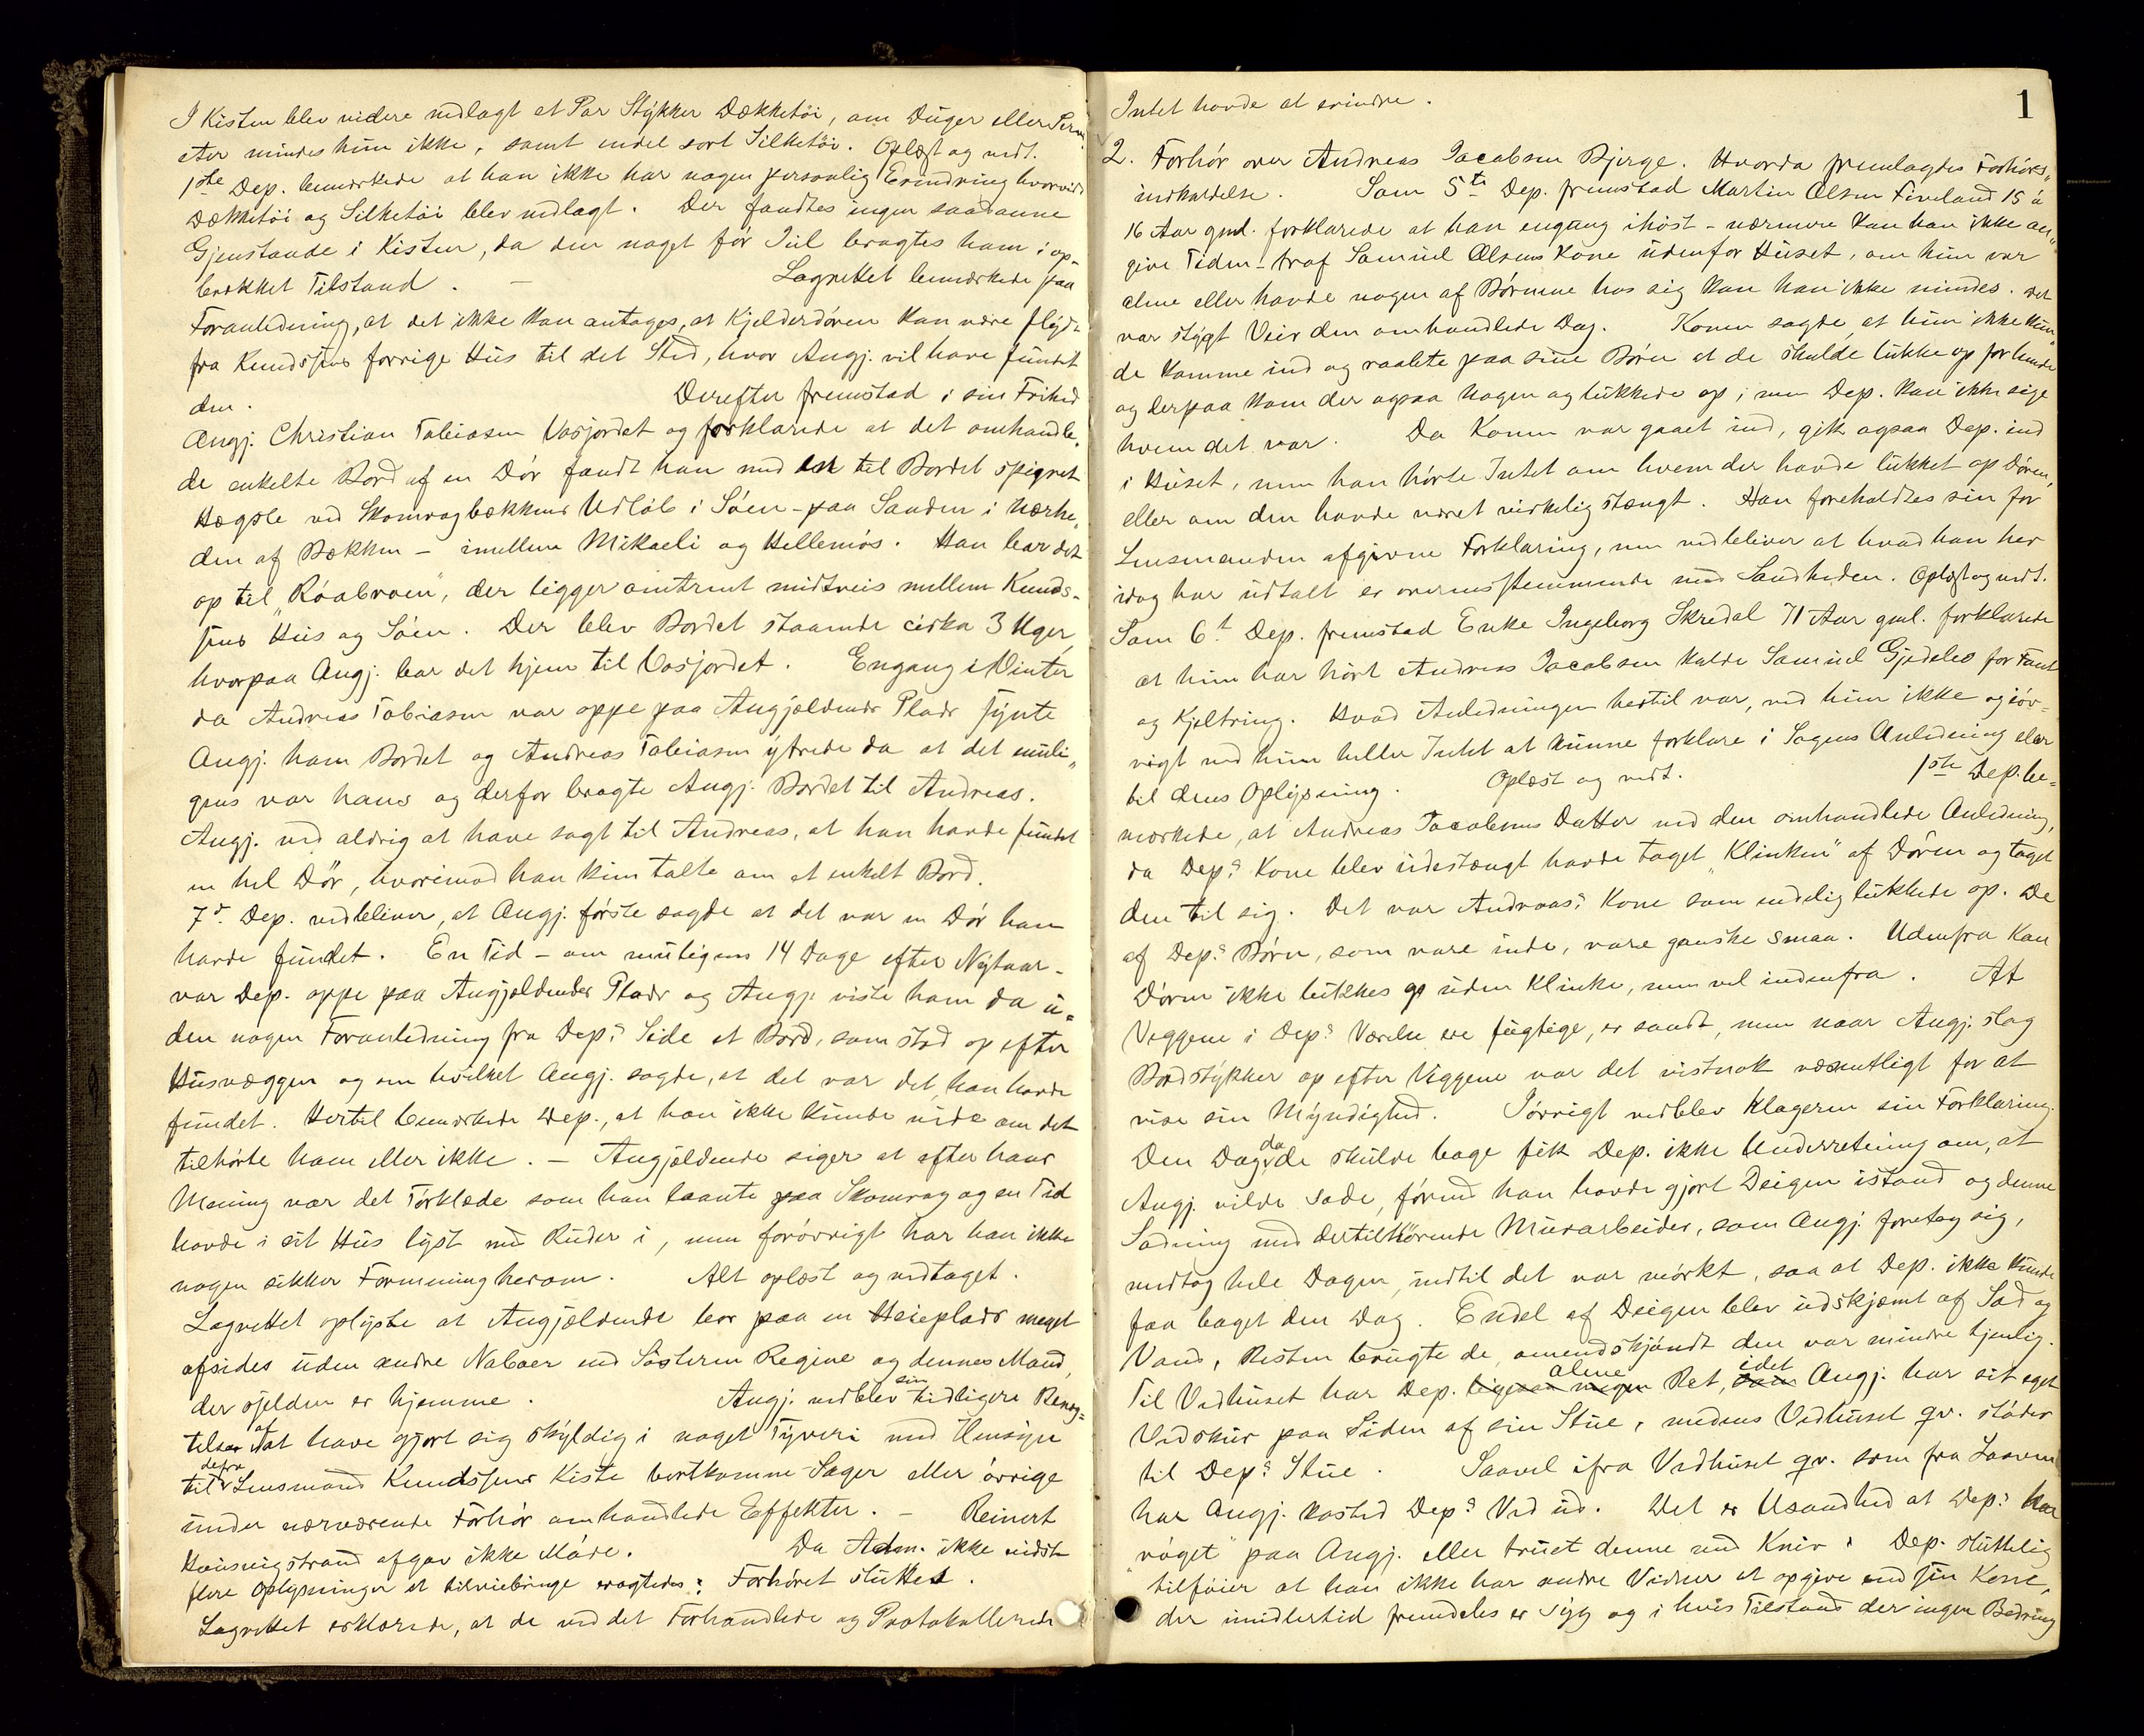 I Kisten blev videre nedlagt et Par Stykker Dækketøi, om Duger eller Servi
etter mindes hun ikke, samt endel sort Silketøi. Oplæst og vedt.
1ste Dep. bemærkede at han ikke har nogen personlig Erindring hvorvidt
Dækketøi og Silketøi blev nedlagt. Der fandtes ingen saadanne
Gjenstande i Kisten, da den noget før Jul bragtes ham i op-
brækket Tilstand. – Lagrettet bemærkede paa
Foranledning, at det ikke kan antages, at Kjelderdøren kan være flydt
fra Knudsens forrige Hus til det Sted, hvor Angj. vil have fundet
den. Derefter fremstod i sin Frihed
Angj. Christian Tobiasen Vasjordet og forklarede at det omhandle„
de enkelte Bord af en Dør fandt han med en til Bordet spigret
Hægsle ved Skomragbækkens Udløb i Søen – paa Sanden i Nærhe„
den af Bækken – imellem Mikaeli og Hellemøs. Han bar det
op til „Róabroen", der ligger omtrent midtveis mellem Knuds-
sens Hus og Søen. Der blev Bordet staaende cirka 3 Uger,
hvorpaa Angj. bar det hjem til Vasjordet. Engang i Vinter
da Andreas Tobiasen var oppe paa Angjældendes Plads synte
Angj. ham Bordet og Andreas Tobiasen ytrede da at det muli„
gens var hans og derfor bragte Angj. Bordet til Andreas.
Angj. ved aldrig at have sagt til Andreas, at han havde fundet
en hel Dør, hvorimod han kun talte om et enkelt Bord.
7de Dep. vedbliver, at Angj. første sagde at det var en Dør han
havde fundet. En Tid – om muligens 14 Dage efter Nytaar –
var Dep. oppe paa Angjældendes Plads og Angj. viste ham da u-
den nogen Foranledning fra Dep.s Side et Bord, som stod op efter
Husvæggen og om hvilket Angj. sagde, at det var det, han havde
fundet. Hertil bemærkede Dep., at han ikke kunde vide om det
tilhørte ham eller ikke. – Angjældende siger at efter hans
Mening var det Tørklæde som han laante paa Skomrag og en Tid
havde i sit Hus lyst med Ruder i, men forøvrigt har han ikke
nogen sikker Formening herom. Alt oplæst og vedtaget.
Lagrettet oplyste at Angjældende bor paa en Heieplads meget
afsides uden andre Naboer end Søsteren Regine og dennes Mand,
der sjelden er hjemme. Angj. vedblev sin tidligere Benæg-
telse af at have gjort sig skyldig i noget Tyveri med Hensyn
til de fra Lensmand Knudssens Kiste bortkomne Sager eller øvrige
under nærværende Forhør omhandlede Effekter. – Reinert
Hausvigstrand afgav ikke Møde. Da Adm. ikke vidste
flere Oplysninger at tilveiebringe eragtedes: Forhøret sluttet.
Lagrettet erklærede, at de ved det Forhandlede og Protokollerede
1
Intet havde at erindre.
2. Forhør over Andreas Jacobsen Bjerge. Hvorda fremlagdes Forhørs„
indkaldelse. Som 5te Dep. fremstod Martin Olsen Fineland 15 à
16 Aar gml. forklarede at han engang ihøst – nærmere kan han ikke an„
give Tiden – traf Samuel Olsens Kone udenfor Huset, om hun var
alene eller havde nogen af Børnene hos sig kan han ikke mindes. Det
var stygt Veir den omhandlede Dag. Konen sagde at hun ikke kun„
de komme ind og raabte paa sine Børn at de skulde lukke op for hende
og derpaa kom der ogsaa nogen og lukkede op; men Dep. kan ikke sige
hvem det var. Da Konen var gaaet ind, gik ogsaa Dep. ind
i Huset, men han hørte Intet om hvem der havde lukket op Døren,
eller om den havde været virkelig stængt. Han foreholdtes sin for
Lensmanden afgivne Forklaring, men vedbliver at hvad han her
idag har udtalt er overensstemmende med Sandheden. Oplæst og vedt.
Som 6t Dep. fremstod Enke Ingeborg Skredal 71 Aar gml. forklarede
at hun har hørt Andreas Jacobsen kalde Samuel Gjedeles for Fant
og Kjeltring. Hvad Anledningen hertil var, ved hun ikke og iøv-
rigt ved hun heller Intet at kunne forklare i Sagens Anledning eller
til dens Oplysning. Oplæst og vedt. 1ste Dep. be-
mærkede, at Andreas Jacobsens Datter ved den omhandlede Anledning,
da Dep.s Kone blev udestængt havde taget „Klinken" af Døren og taget
den til sig. Det var Andreas's Kone som endelig lukkede op. De
af Dep.s Børn, som vare inde, vare ganske smaa. Udenfra kan
Døren ikke lukkes op uden Klinke, men vel indenfra. At
Væggene i Dep.s Værelse ere fugtige, er sandt, men naar Angj. slog
Bordstykker op efter Væggene var det vistnok væsentligt for at
vise sin Myndighed. Iøvrigt vedblev Klageren sin Forklaring.
Den Dag da de skulde bage fik Dep. ikke Underretning om, at
Angj. vilde sode, førend han havde gjort Deigen istand og denne
Sodning med dertilhørende Murarbeider, som Angj. foretog sig,
medtog hele Dagen, indtil det var mørkt, saa at Dep. ikke kunde
faa baget den Dag. Endel af Deigen blev udskjæmt af Sod og
Vand, Resten brugte de, omendskjøndt den var mindre tjenlig.
Til Vedhuset har Dep. ligesaa megen alene Ret, som idet Angj. har sit eget
Vedskur paa Siden af sin Stue, medens Vedhuset qv. støder
til Dep.s Stue. Saavel ifra Vedhuset qv. som fra Laaven
har Angj. kastet Dep.s Ved ud. Det er Usandhed at Dep. har
„røget" paa Angj. eller truet denne med Kniv. Dep. sluttelig
tilføier at han ikke har andre Vidner at opgive end sin Kone,
der imidlertid fremdeles er syg og i hvis Tilstand der ingen Bedring